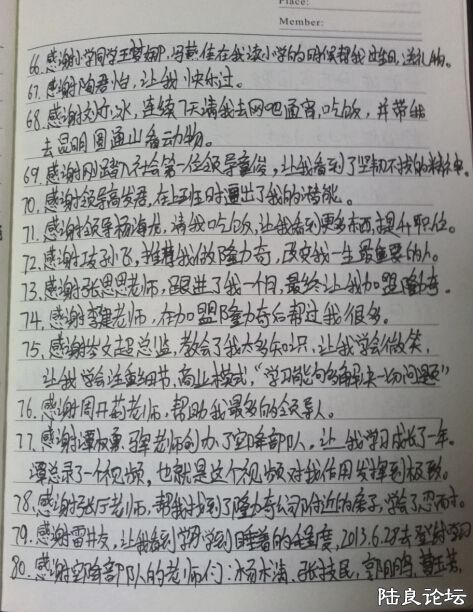 Place:
Member:
66.感谢小学同学王梦娜,冯艳佳在我读小学的时候帮我过生日,送礼物。
67.感谢陶君怡,让我快乐过。
68.感谢刘冰,连续7天请我去网吧通宵,吃饭,并带我
去昆明圆通山看动物。
69.感谢刚踏入社会第一位领导童俊,让我看到了坚韧不拔的精神。
70.感谢领导高发君,在上班时逼出了我的潜能。
71.感谢领导杨海龙,请我吃饭,让我看到更多东西,提升职位。
72.感谢孙飞,推荐我做隆力奇,改变我一生最重要的人。
73.感谢张思思老师,跟进了我一个月,最终让我加盟隆力奇。
74.感谢李建老师,在加盟隆力奇后帮过我很多。
75.感谢岑文超总监,教会了我太多知识,让我学会微笑,
让我学会注重细节,商业模式,“学习能够解决一切问题”
76.感谢周开菊老师,帮助我最多的领导人。
77.感谢谭权勇老师创办了空降部队,让我学习成长了一年。
谭总录了一个视频,也就是这个视频对我作用发挥到极致。
78.感谢张老师,帮我找到了隆力奇公司附近的房子,学会了忍耐。
79.感谢雷井友,让我看到学习学到睡着的程度,2013.6.28去
80.感谢空降部队的老师们:杨永清,张技民,郭鹏鹏,
陆良论坛